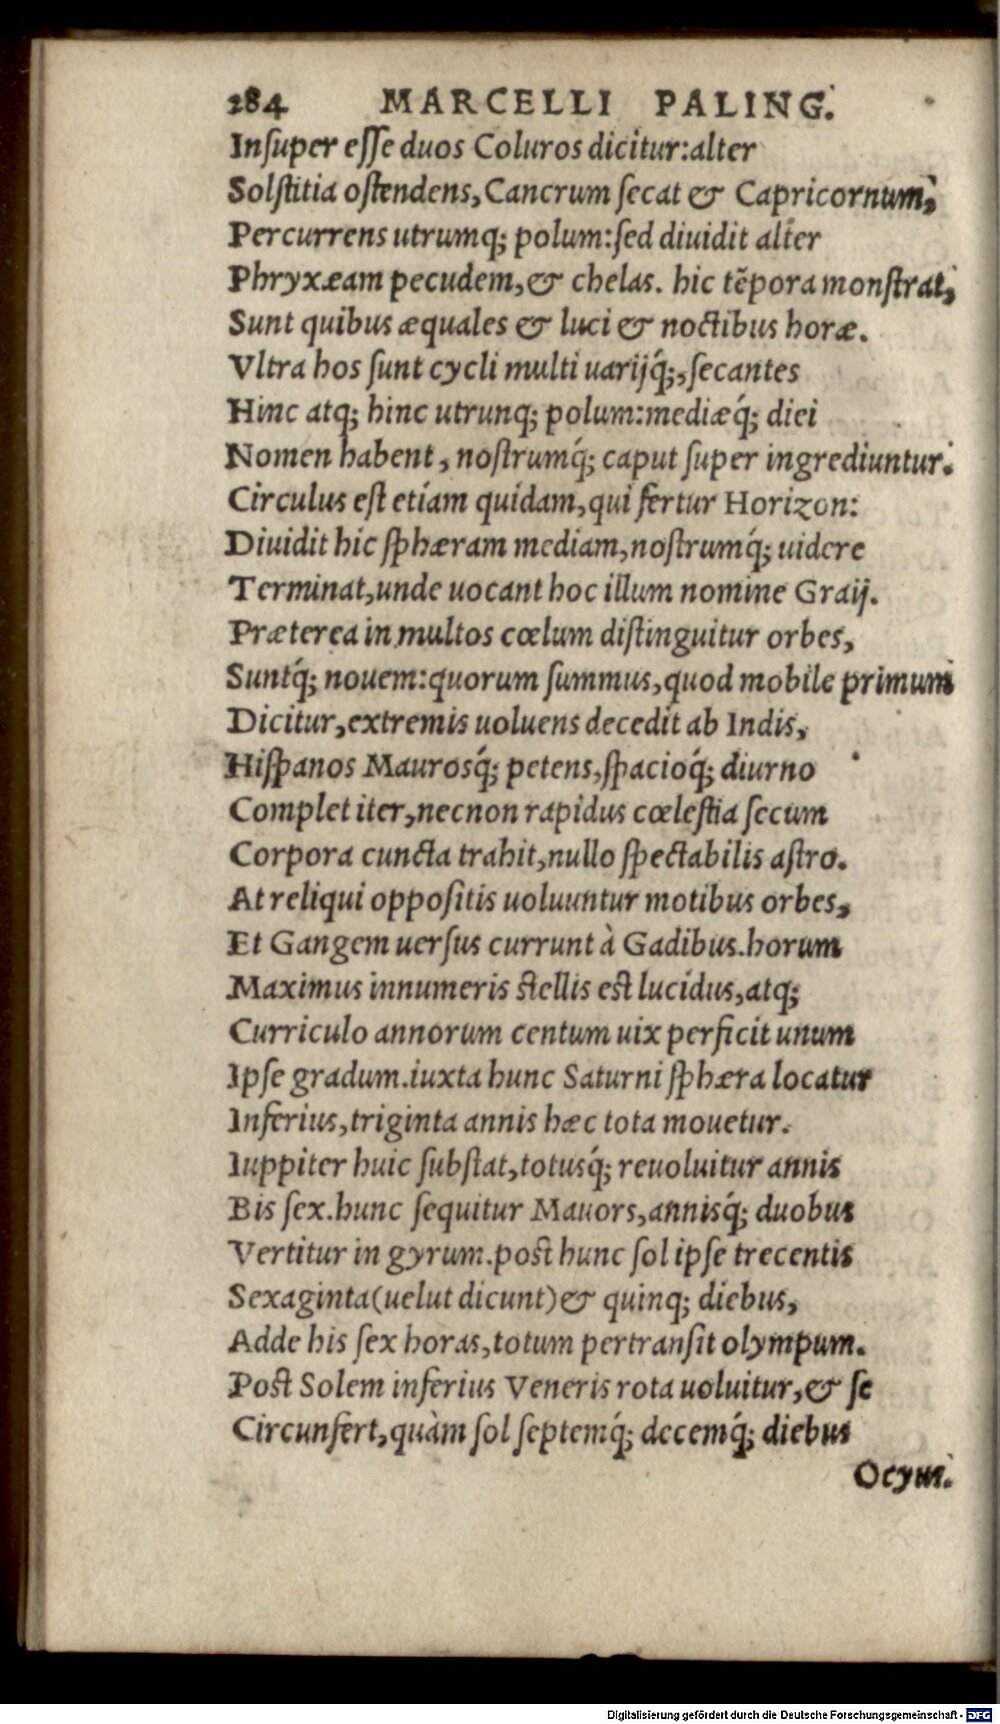 284 MARCELLI PALING.
Inſuper eſſe duos Coluros dicitur:alter
Solſtitia oſtendens, Cancrum ſecat & Capricornum,
Percurrens utrumq; polum:ſed diuidit alter
Phryxæam pecudem,& chelas. hic tẽpora monſtrat,
Sunt quibus æquales & luci & noctibus horæ.
Vltra hos ſunt cycli multi uarijq́;,ſecantes
Hinc atq; hinc utrunq; polum:mediæq́; diei
Nomen habent, noſtrumq́; caput ſuper ingrediuntur.
Circulus eſt etiam quidam,qui fertur Horizon:
Diuidit hic ſphæram mediam,noſtrumq́; uidere
Terminat,unde uocant hoc illum nomine Graij.
Præterea in multos cœlum diſtinguitur orbes,
Suntq́; nouem:quorum ſummus,quod mobile primum
Dicitur,extremis uoluens decedit ab Indis,
Hiſpanos Maurosq́; petens,ſpacioq́; diurno
Complet iter,necnon rapidus cœleſtia ſecum
Corpora cuncta trahit,nullo ſpectabilis aſtro.
At reliqui oppoſitis uoluuntur motibus orbes,
Et Gangem uerſus currunt à Gadibus.horum
Maximus innumeris ſtellis eſt lucidus,atq;
Curriculo annorum centum uix perficit unum
Ipſe gradum.iuxta hunc Saturni ſphæra locatur
Inferius,triginta annis hæc tota mouetur.
Iuppiter huic ſubſtat,totusq́; reuoluitur annis
Bis ſex.hunc ſequitur Mauors,annisq́; duobus
Vertitur in gyrum.poſt hunc ſol ipſe trecentis
Sexaginta(uelut dicunt)& quinq; diebus,
Adde his ſex horas,totum pertranſit olympum.
Poſt Solem inferius Veneris rota uoluitur,& ſe
Circunfert,quàm ſol ſeptemq́; decemq́; diebus
Ocyus.
Digitalisierung gefördert durch die Deutsche Forschungsgemeinschaft - DFG